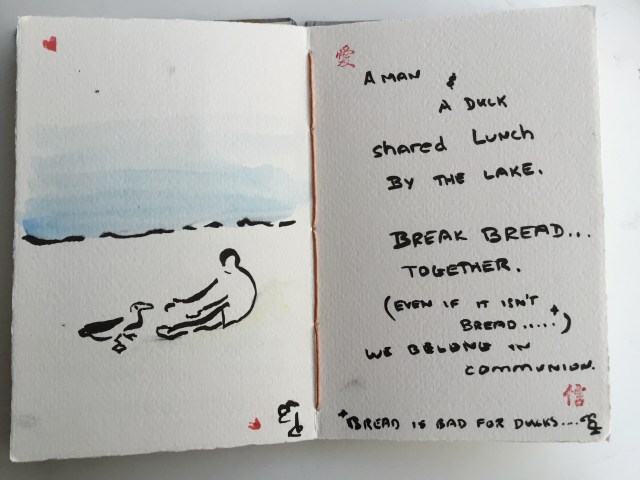 愛
A MAN &
A DUCK
shared LUNCH
BY THE LAKE.
BREAK BREAD...
TOGETHER.
(EVEN IF IT ISN'T
BREAD.....+)
WE BELONG IN
COMMUNION.
信
+BREAD IS BAD FOR DUCKS...